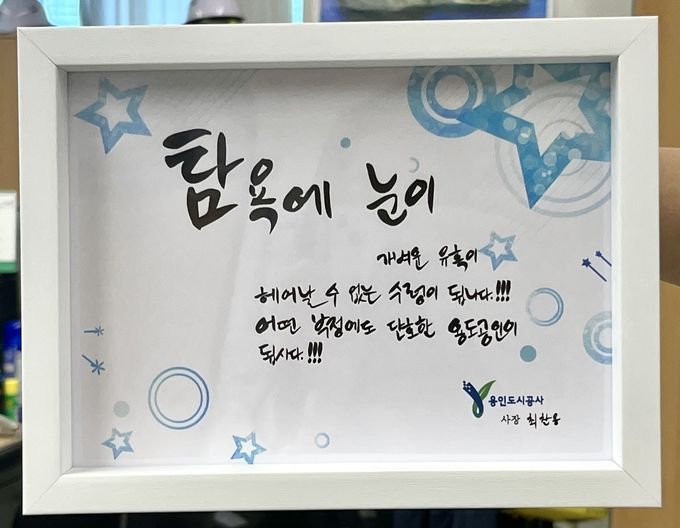 탐욕에 눈이
가벼운 유혹이
헤어날 수 없는 수렁이 됩니다.!!!
어떤 부정에도 단호한 용도공인이
됩시다.!!!
용인도시공사
사장 최찬용